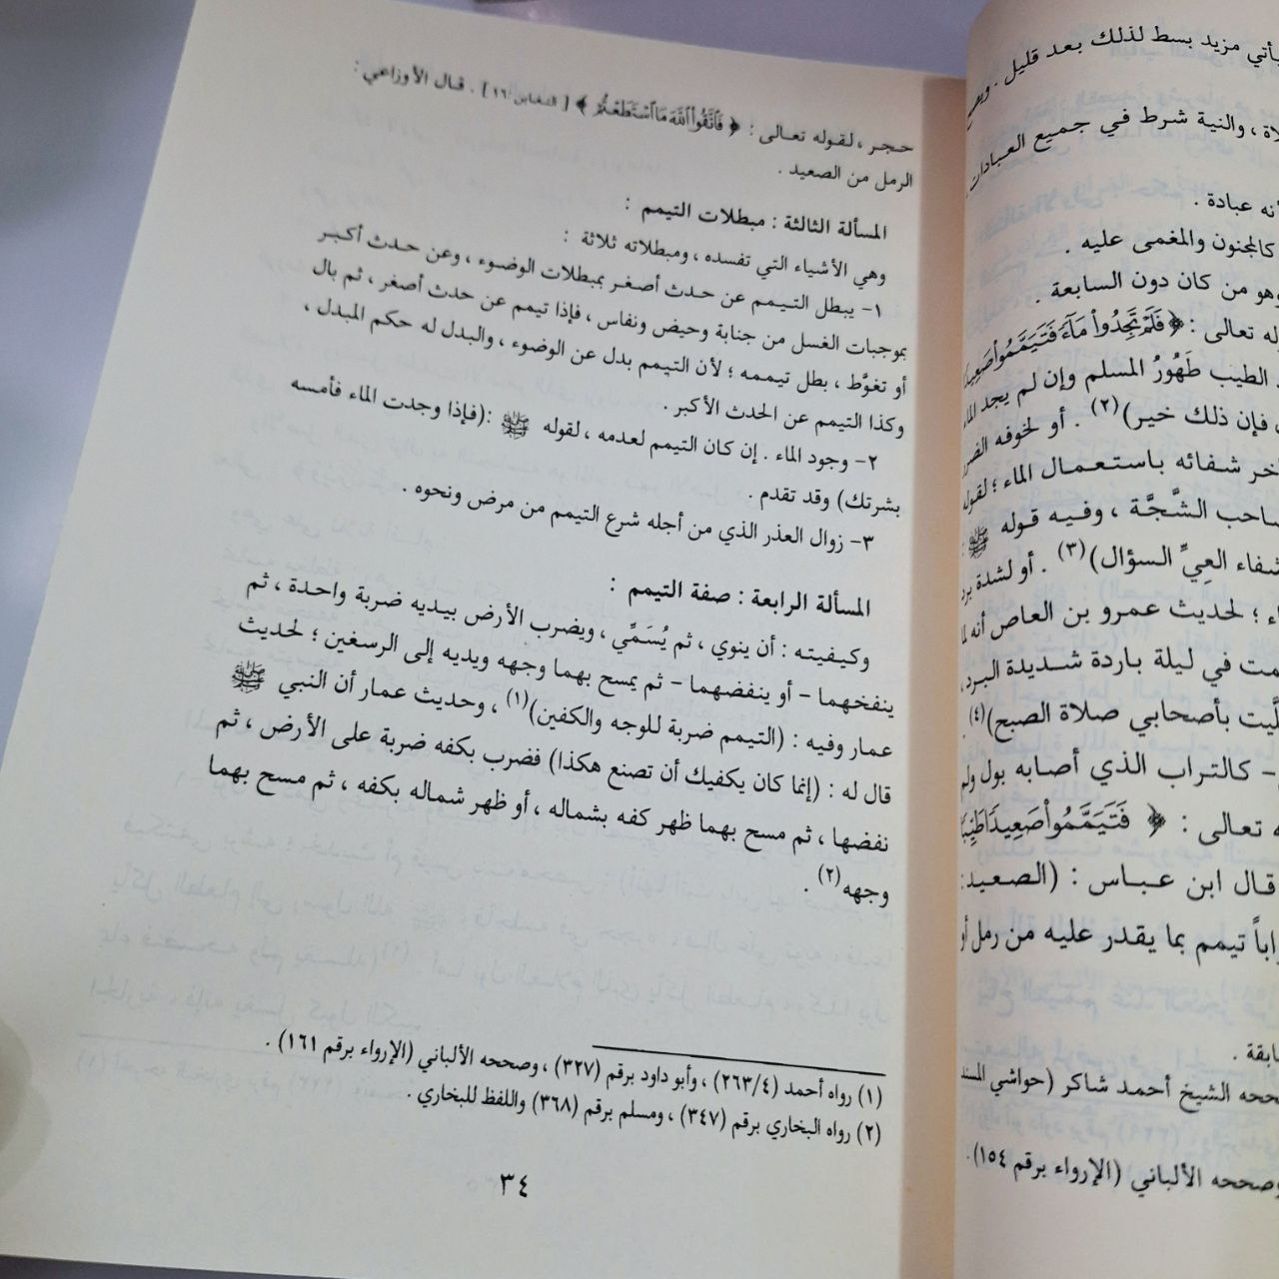 حجر ، لقوله تعالى : ﴿ فَاتَّقُوا اللَّهَ مَا اسْتَطَعْتُمْ ﴾ [التغابن: ١٦] . قال الأوزاعي :
الرمل من الصعيد .
المسألة الثالثة : مبطلات التيمم :
وهي الأشياء التي تفسده ، ومبطلاته ثلاثة :
١- يبطل التيمم عن حدث أصغر بمبطلات الوضوء ، وعن حدث أكبر
بموجبات الغسل من جنابة وحيض ونفاس ، فإذا تيمم عن حدث أصغر ، ثم بال
أو تغوَّط ، بطل تيممه ؛ لأن التيمم بدل عن الوضوء ، والبدل له حكم المبدل ،
وكذا التيمم عن الحدث الأكبر .
٢- وجود الماء . إن كان التيمم لعدمه ، لقوله ﷺ :(فإذا وجدت الماء فأمسه
بشرتك) وقد تقدم .
٣- زوال العذر الذي من أجله شرع التيمم من مرض ونحوه .
المسألة الرابعة : صفة التيمم :
وكيفيته : أن ينوي ، ثم يُسَمِّي ، ويضرب الأرض بيديه ضربة واحدة ، ثم
ينفخهما - أو ينفضهما - ثم يمسح بهما وجهه ويديه إلى الرسغين ؛ لحديث
عمار وفيه : (التيمم ضربة للوجه والكفين)(١) ، وحديث عمار أن النبي ﷺ
قال له : (إنما كان يكفيك أن تصنع هكذا) فضرب بكفه ضربة على الأرض ، ثم
نفضها ، ثم مسح بهما ظهر كفه بشماله ، أو ظهر شماله بكفه ، ثم مسح بهما
وجهه(٢) .
(١) رواه أحمد (٢٦٣/٤) ، وأبو داود برقم (٣٢٧) ، وصححه الألباني (الإرواء برقم ١٦١) .
(٢) رواه البخاري برقم (٣٤٧) ، ومسلم برقم (٣٦٨) واللفظ للبخاري .
٣٤
يأتي مزيد بسط لذلك بعد قليل .
، والنية شرط في جميع العبادات
عبادة .
كالمجنون والمغمى عليه .
وهو من كان دون السابعة .
تعالى : ﴿ فَلَمْ تَجِدُوا مَاءً فَتَيَمَّمُوا صَعِيدًا
الطيب طَهُورُ المسلم وإن لم يجد الماء
فإن ذلك خير)(٢) . أو لخوفه
شفائه باستعمال الماء ؛ لقوله
الشَّجَّة ، وفيه قوله ﷺ
شفاء العِيِّ السؤال)(٣) . أو لشدة برد
؛ لحديث عمرو بن العاص أنه
في ليلة باردة شديدة البرد ،
بأصحابي صلاة الصبح)(٤) .
- كالتراب الذي أصابه بول ولم
تعالى : ﴿ فَتَيَمَّمُوا صَعِيدًا طَيِّبًا
قال ابن عباس : (الصعيد:
تيمم بما يقدر عليه من رمل أو
الشيخ أحمد شاكر (حواشي المسند
وصححه الألباني (الإرواء برقم ١٥٤).